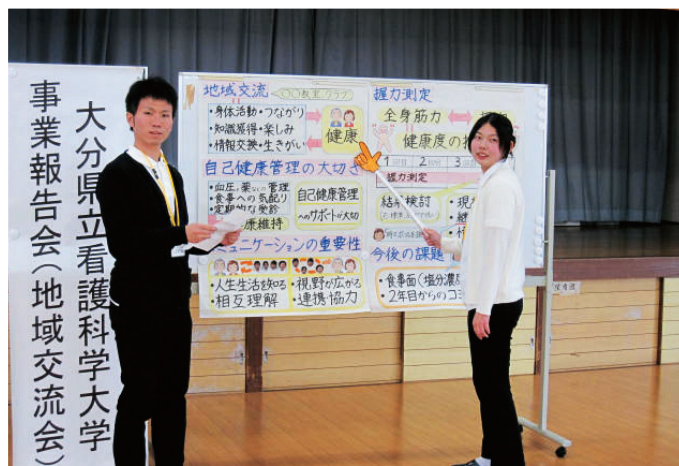 大分県立看護科学大学
事業報告会(地域交流会)
地域交流
○○教室、クラブ
・身体活動・つながり
・知識獲得・楽しみ
・情報交換・生きがい
健康
自己健康管理の大切さ
・血圧、薬などの管理
・食事への気配り
・定期的な受診
康維持
自己健康管理
へのサポートが大切
ミュニケーションの重要性
・人生生活を知る
・相互理解
・視野が広がる
・連携協力
握力測定
全身筋力
健康度の
1
2
3
握力測定
結果検討
今後の課題
・食事面(塩分濃
・2年目からのコミ